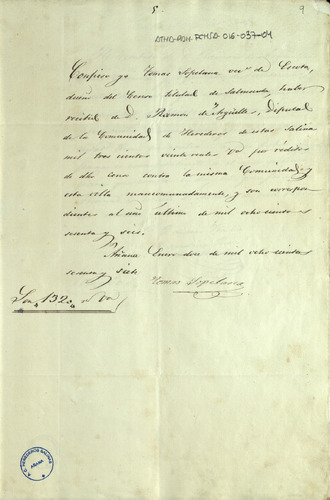 5.
9
ATHA-DAH-FCHSA-016-037-04
Confieso yo Tomas Sopelana vecº. de
dueño del Censo titulad de haber
recibid de D. Ramon de Diputad
de la Comunidad de Herederos de estas Salinas
mil tres cientos veinte reales von por réditos
de dho censo contra la misma Comunidad y
esta villa mancomunadamente, y son correspon-
dientes al año último de mil ochocientos
sesenta y seis.
Añana Enero doce de mil ochocientos
sesenta y siete
Tomas Sopelana
Son, 1320, r. Von
C. HEREDEROS SALINAS
AÑANA